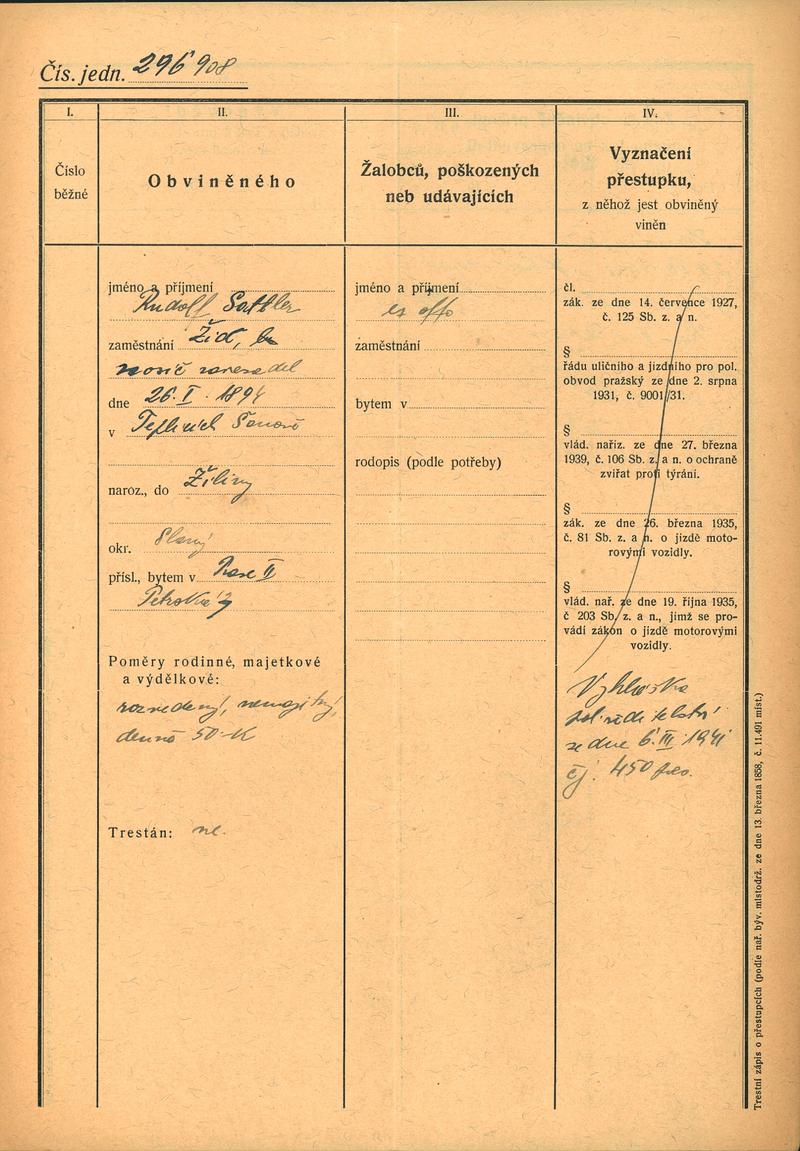 Čís. jedn. 296 908
I.
Číslo
běžné
II.
Obviněného
III.
Žalobců, poškozených
neb udávajících
IV.
Vyznačení
přestupku,
z něhož jest obviněný
viněn
jméno a příjmení
Rudolf Sattler
zaměstnání Žid,
nosič zavazadel
dne 26. I. 1894
v Teplicích Šanově
naroz., do Žiliny
okr. Slaný
přísl., bytem v II
Petrská
Poměry rodinné, majetkové
a výdělkové:
rozvedený, nemajetný,
denně 50 K
Trestán: ne.
jméno a příjmení
ex offo
zaměstnání
bytem v
rodopis (podle potřeby)
čl.
zák. ze dne 14. července 1927,
č. 125 Sb. z. a n.
§
řádu uličního a jízdního pro pol.
obvod pražský ze dne 2. srpna
1931, č. 9001/31.
§
vlád. naříz. ze dne 27. března
1939, č. 106 Sb. z. a n. o ochraně
zvířat proti týrání.
§
zák. ze dne 26. března 1935,
č. 81 Sb. z. a n. o jízdě moto-
rovými vozidly.
§
vlád. nař. ze dne 19. října 1935,
č 203 Sb. z. a n., jímž se pro-
vádí zákon o jízdě motorovými
vozidly.
Vyhláška
pol. ředitelství
ze dne 6. III. 1941
čj. 450 pres.
Trestní zápis o přestupcích (podle nař. býv. místodrž. ze dne 13. března 1858, č. 11.491 míst.)